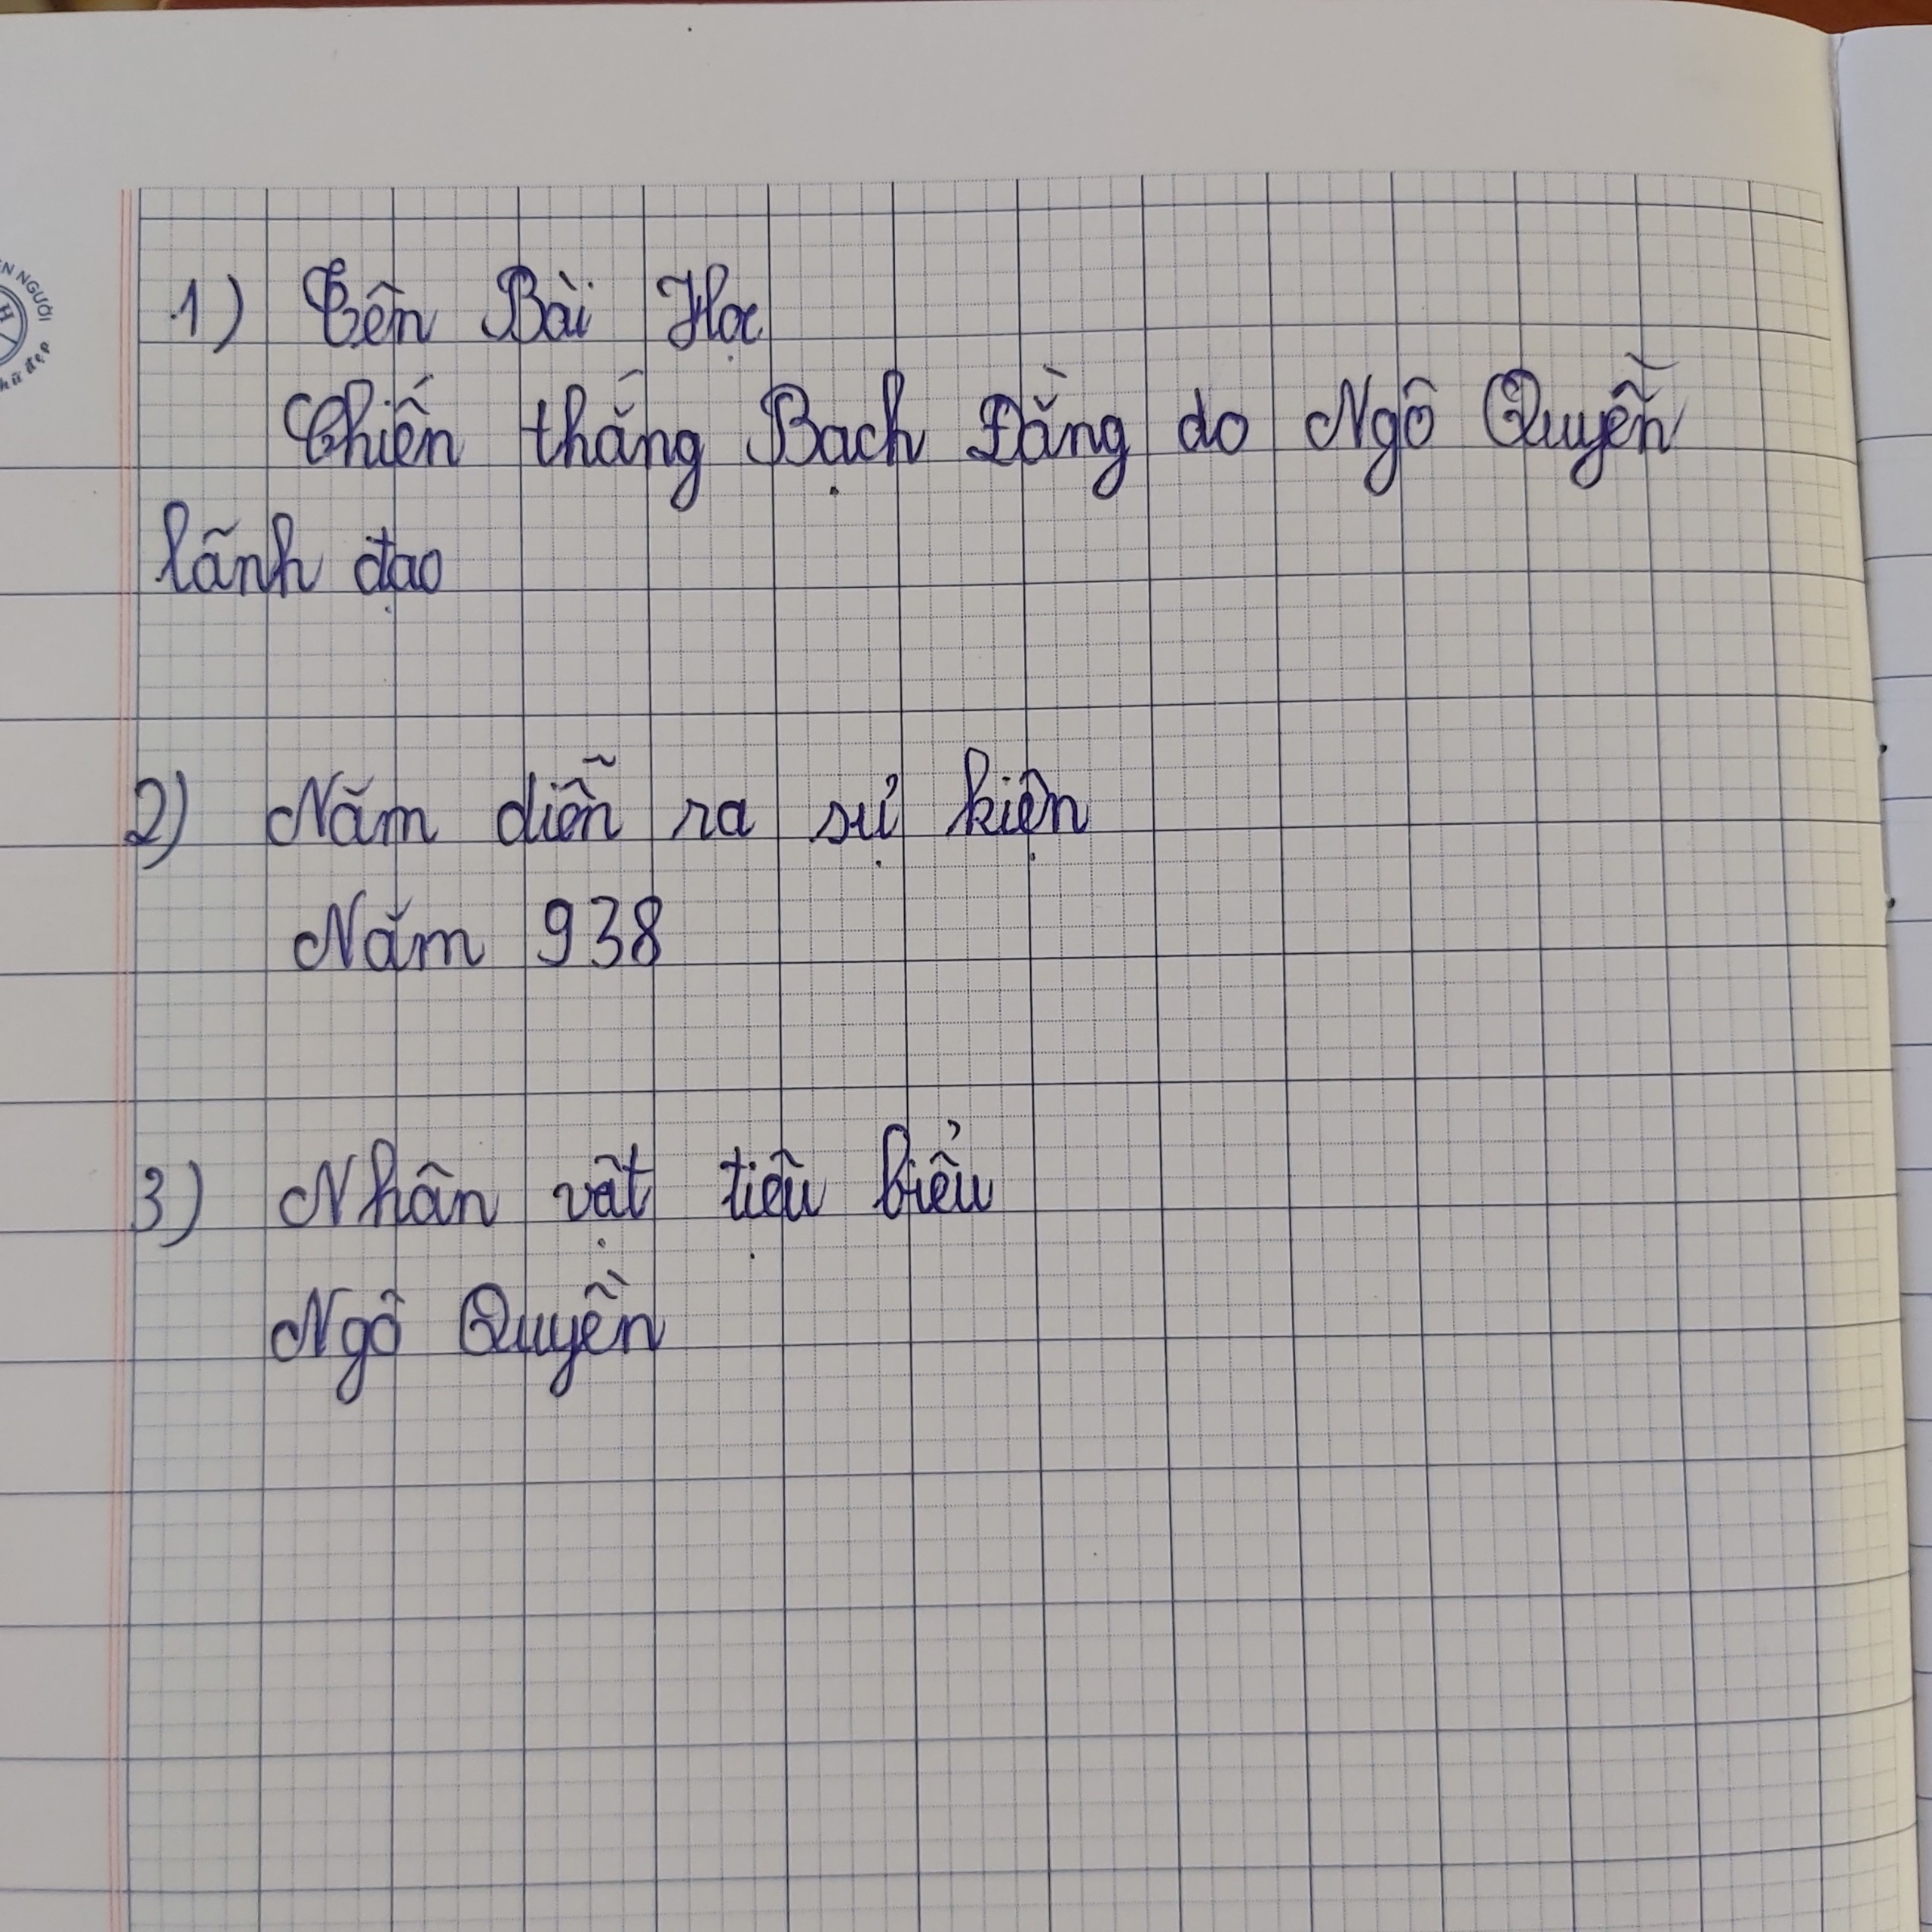 1) Tên Bài Học
Chiến thắng Bạch Đằng do Ngô Quyền
lãnh đạo
2) Năm diễn ra sự kiện
Năm 938
3) Nhân vật tiệu biểu
Ngô Quyền
NGƯỜI